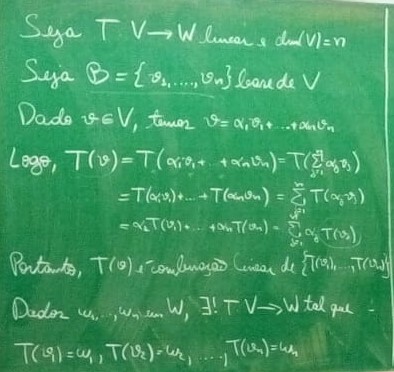 Seja T V → W linear e dim(V) = n
Seja B = {v₁, ...., vₙ} base de V
Dado v ∈ V, temos v = α₁v₁ + ... + αₙvₙ
Logo, T(v) = T(α₁v₁ + ... + αₙvₙ) = T(∑ⁿⱼ₌₁ αⱼvⱼ)
= T(α₁v₁) + ... + T(αₙvₙ) = ∑ⁿⱼ₌₁ T(αⱼvⱼ)
= α₁T(v₁) + ... + αₙT(vₙ) = ∑ⁿⱼ₌₁ αⱼT(vⱼ)
Portanto, T(v) é combinação linear de {T(v₁), ..., T(vₙ)}
Dados w₁, ..., wₙ em W, ∃! T V → W tal que
T(v₁) = w₁, T(v₂) = w₂, ...., T(vₙ) = wₙ